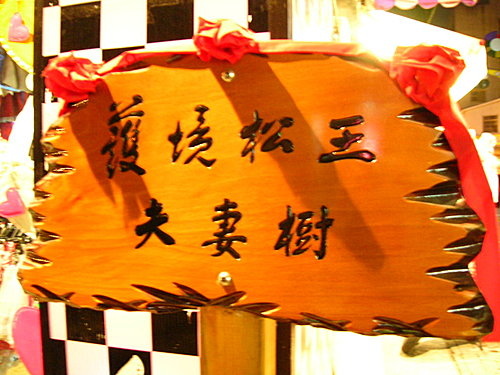 護境松王
夫妻樹